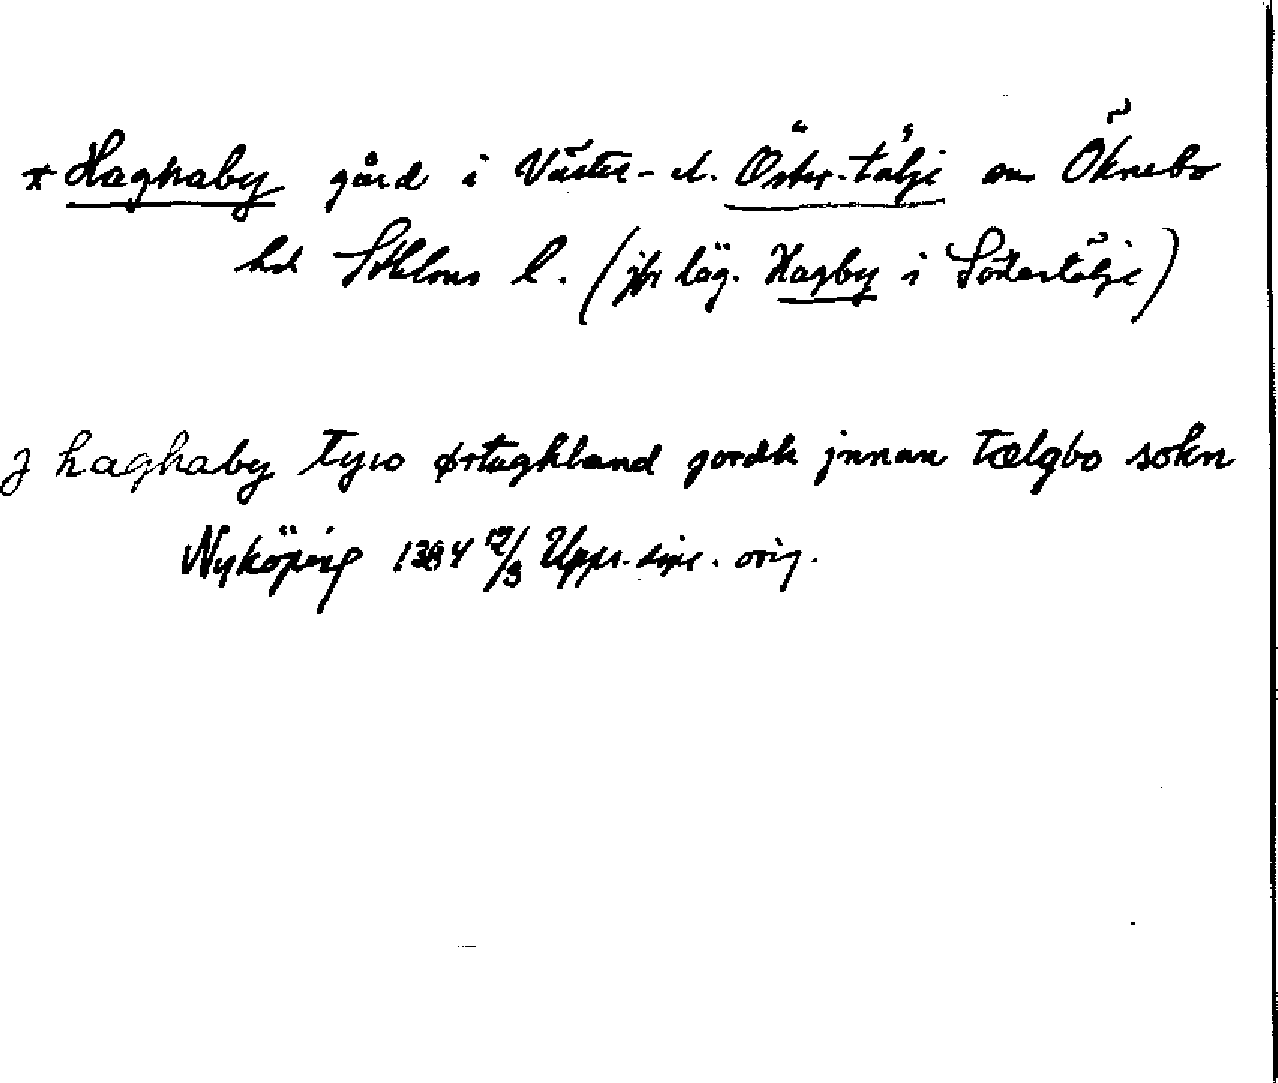 * Haghaby gård i Väster- el. Öster-tälje sn Öknebo
hd Sthlms l. (jfr läg. Hagby i Södertälje)
J haghaby tyio ørtughland jordh jnnan tælgbo sokn
Nyköping 1384 12/3 Upps. orig.